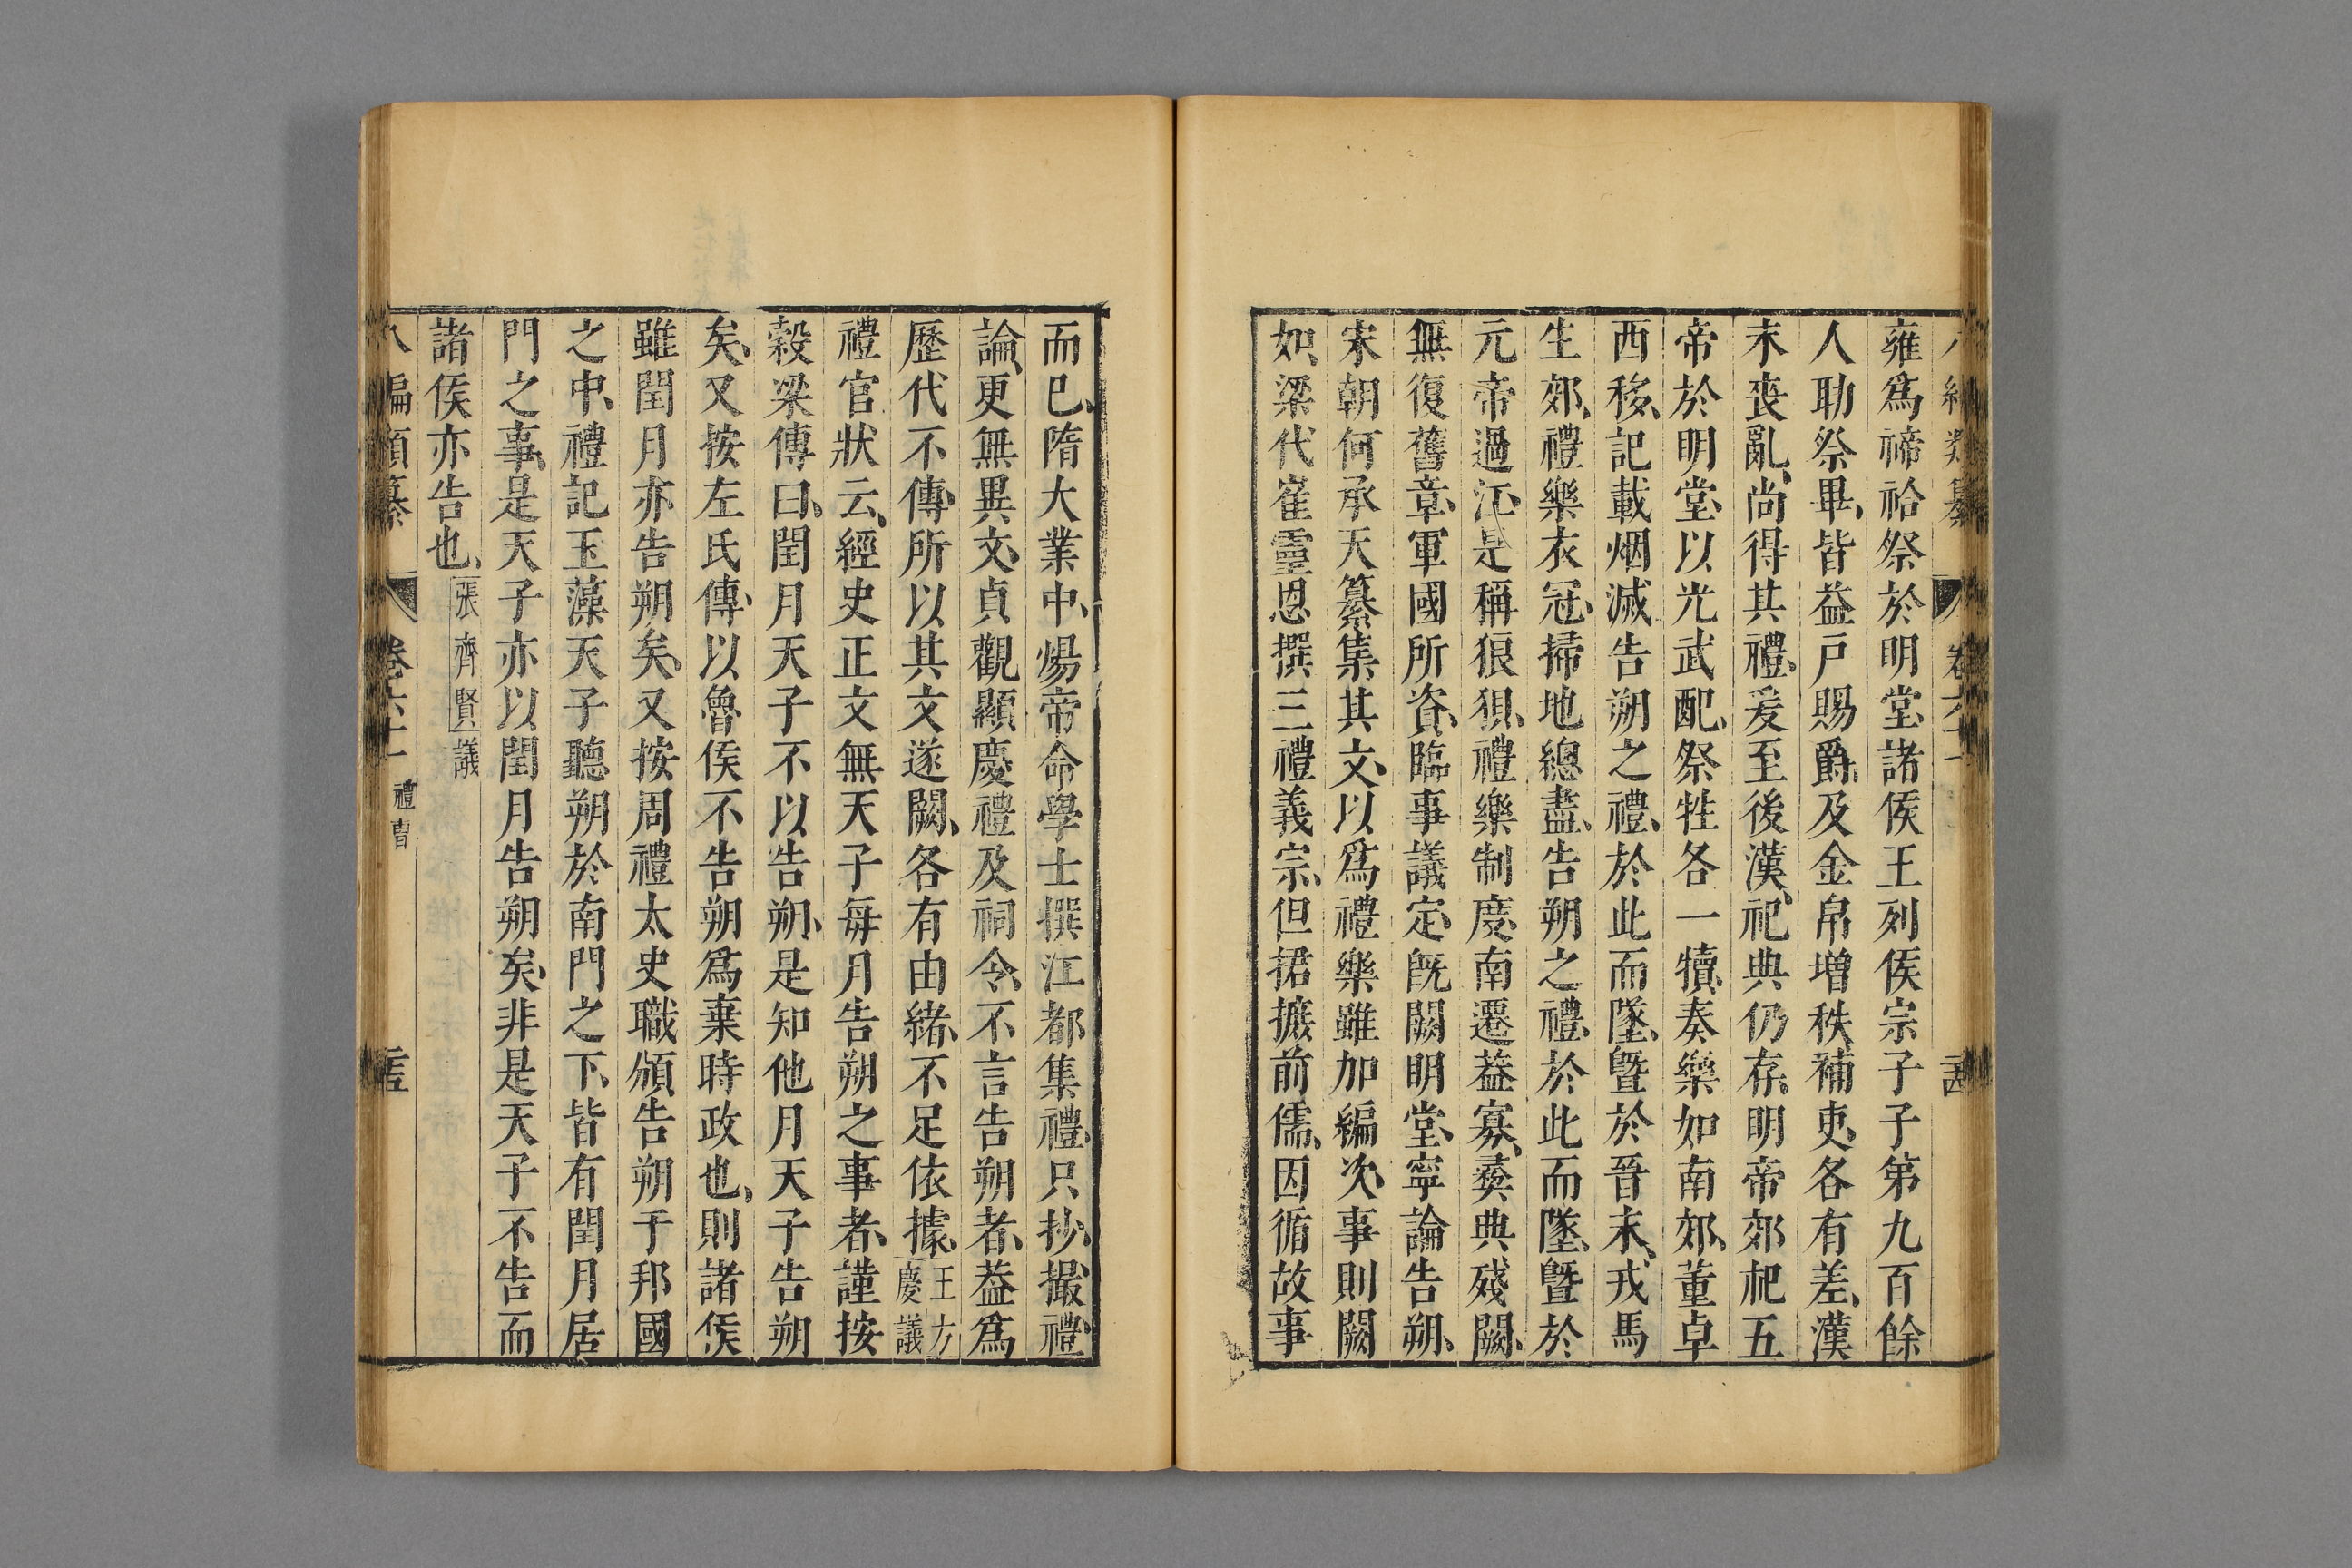 雍爲禘祫祭於明堂諸侯王列侯宗子子第九百餘
人助祭畢、皆益戸賜爵、及金帛增秩、補吏、各有差、漢
末喪亂、尚得其禮、爰至後漢、祀典仍存、明帝郊祀五
帝於明堂、以光武配、祭牲各一犢、奏樂如南郊、董卓
西移、記載烟滅告朔之禮、於此而墜、暨於晉末、戎馬
生郊、禮樂衣冠、掃地總盡、告朔之禮、於此而墜、暨於
元帝過江、是稱狼狽、禮樂制度、南遷葢寡、彝典殘闕、
無復舊章、軍國所資、臨事議定、旣闕明堂、寧論告朔、
宋朝何承天纂集其文、以爲禮樂雖加編次、事則闕
如、梁代崔靈恩撰三禮義宗、但捃摭前儒、因循故事
而已、隋大業中、煬帝命學士撰江都集禮、只抄撮禮、
論、更無異文、貞觀顯慶禮及祠令、不言告朔者、葢爲
歷代不傳、所以其文遂闕、各有由緒、不足依據、王方慶議
禮官狀云、經史正文無天子每月告朔之事者、謹按
穀梁傳曰、閏月天子不以告朔、是知他月天子告朔
矣、又按左氏傳、以魯侯不告朔爲棄時政也、則諸侯
雖閏月亦告朔矣、又按周禮太史職頒告朔于邦國
之中、禮記玉藻天子聽朔於南門之下、皆有閏月居
門之事、是天子亦以閏月告朔矣、非是天子不告而
諸侯亦告也、張齊賢議
八編類纂 卷六十 禮曹